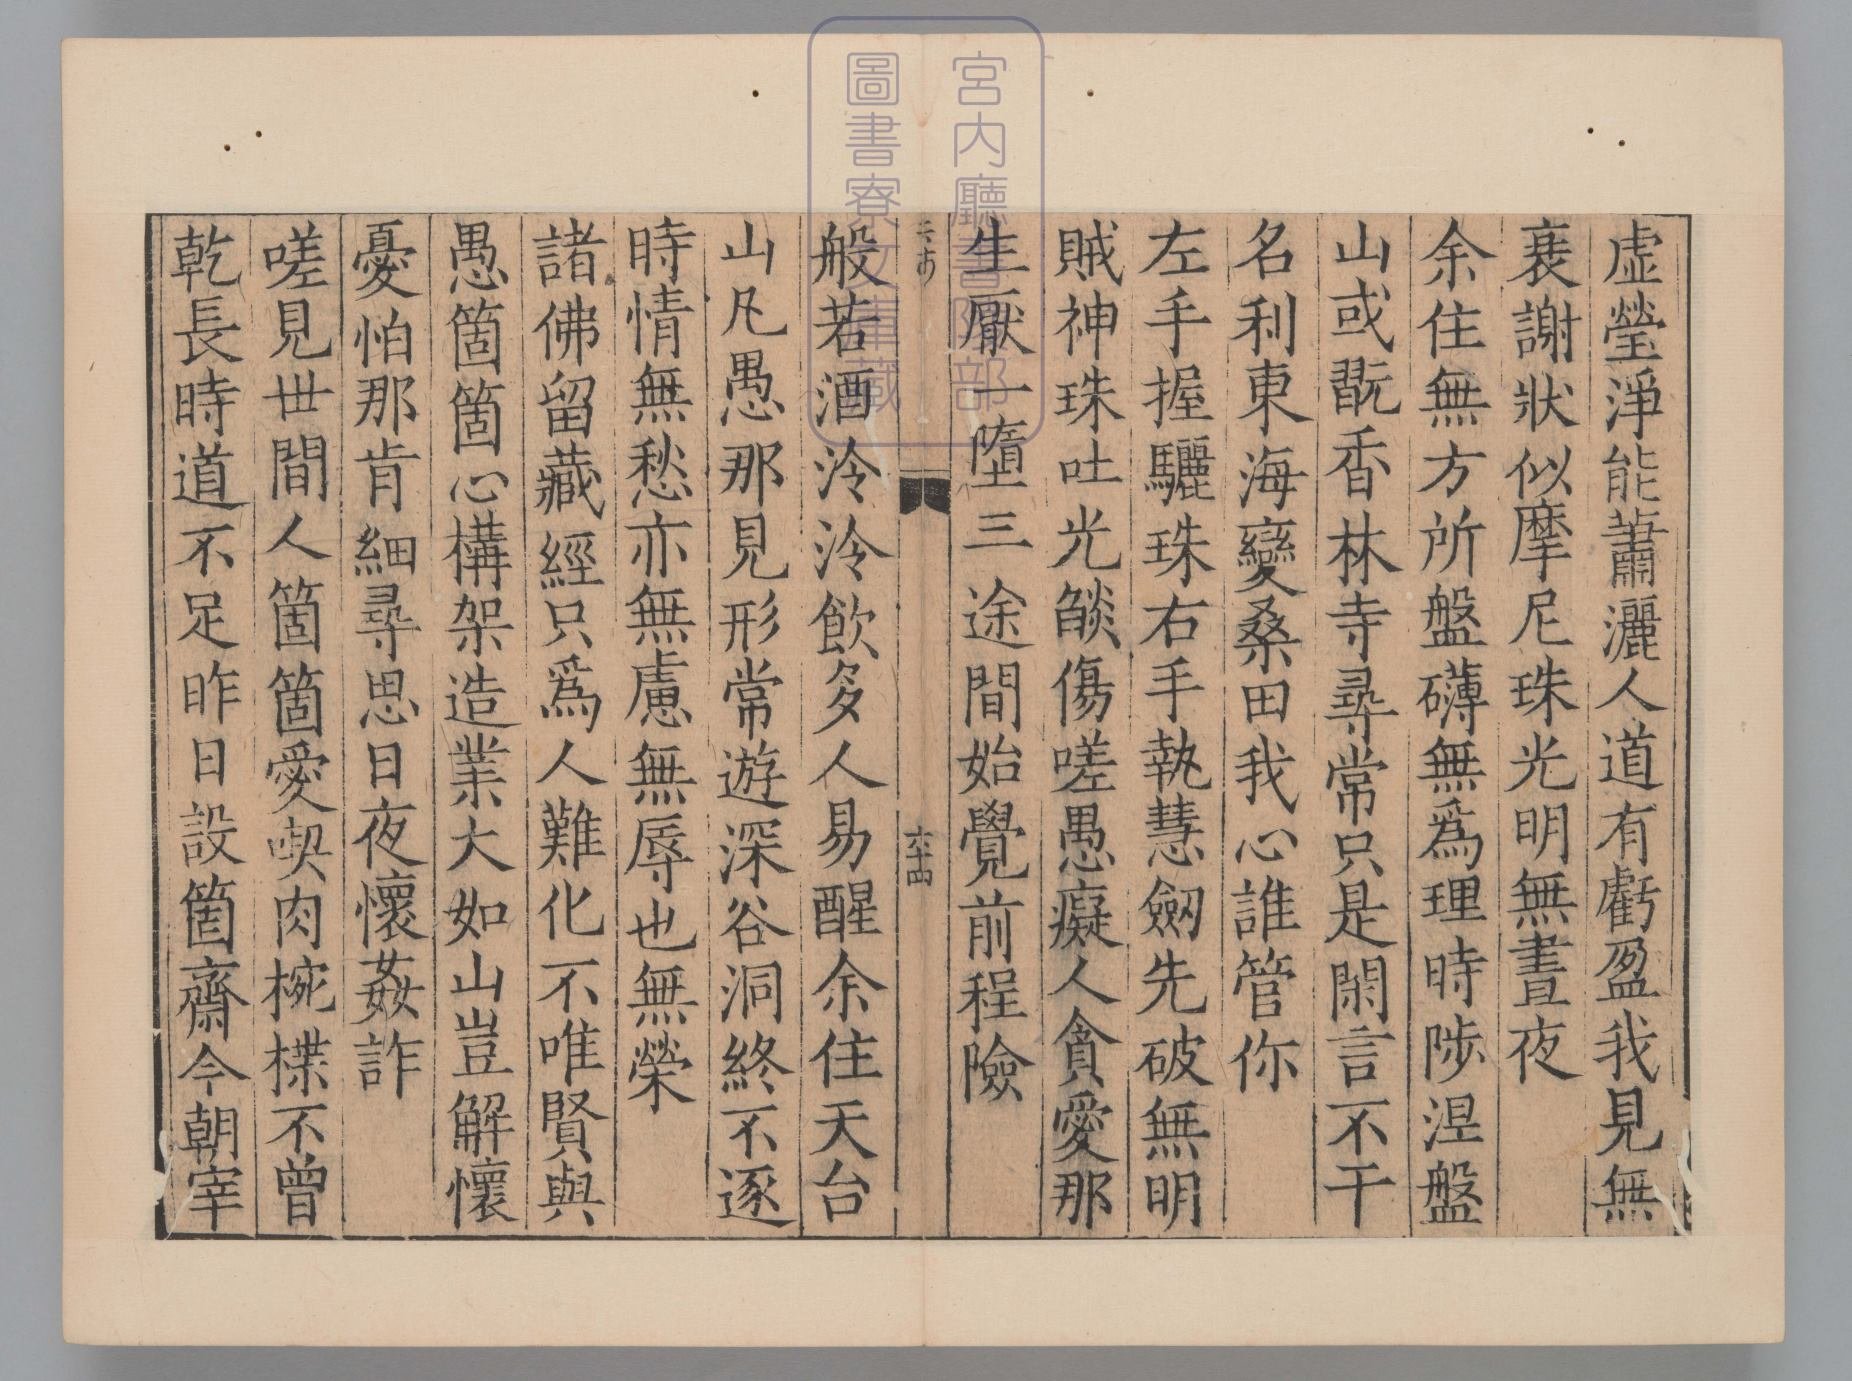 虛瑩淨能蕭灑人道有虧盈我見無
衰謝狀似摩尼珠光明無晝夜
余住無方所盤礴無爲理時陟涅盤
山或翫香林寺尋常只是閑言不干
名利東海變桑田我心誰管你
左手握驪珠右手執慧劔先破無明
賊神珠吐光燄傷嗟愚癡人貪愛那
生厭一墮三途間始覺前程險
六十四
般若酒泠泠飲多人易醒余住天台
山凡愚那見形常遊深谷洞終不逐
時情無愁亦無慮無辱也無榮
諸佛留藏經只爲人難化不唯賢與
愚箇箇心構架造業大如山豈解懷
憂怕那肯細尋思日夜懷姦詐
嗟見世間人箇箇愛喫肉椀楪不曾
乾長時道不足昨日設箇齋今朝宰
宮內廳書陵部
圖書寮文庫藏